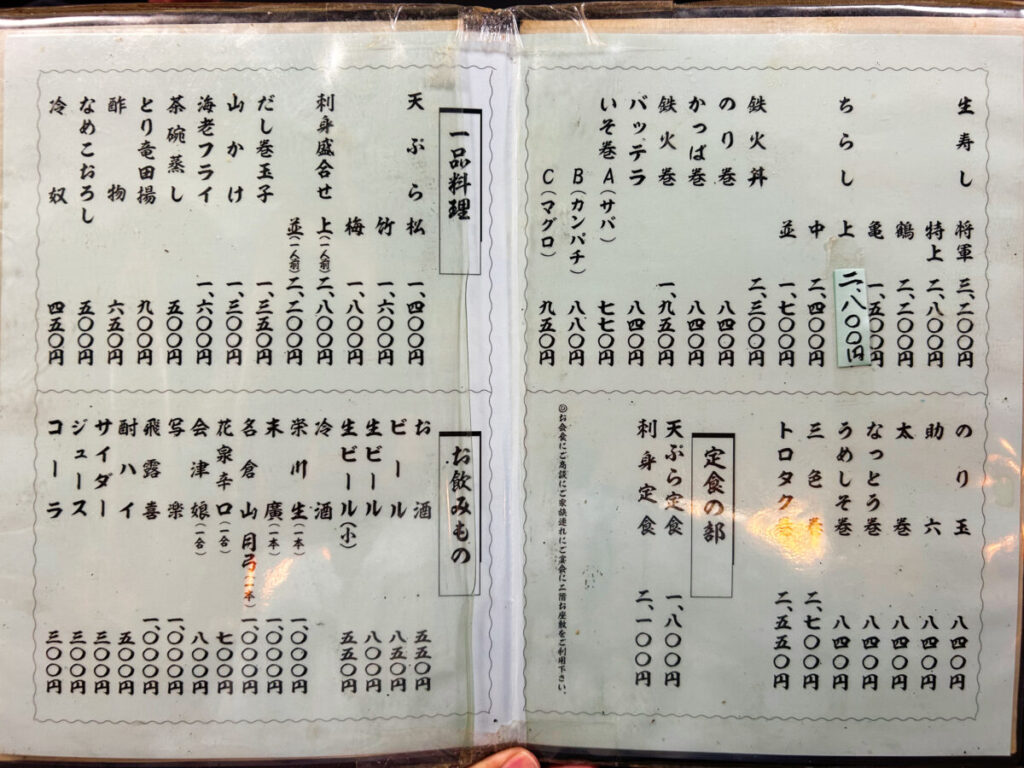 生寿し 将軍 三、二〇〇円
特上 二、八〇〇円
鶴 二、二〇〇円
亀 一、五〇〇円
ちらし 上 二、八〇〇円
中 二、四〇〇円
並 一、七〇〇円
鉄火丼 二、三〇〇円
のり巻 八四〇円
かっぱ巻 八四〇円
鉄火巻 一、九五〇円
バッテラ 八四〇円
いそ巻 A(サバ) 七七〇円
B(カンパチ) 八八〇円
C(マグロ) 九五〇円
のり玉 八四〇円
助六 八四〇円
太巻 八四〇円
なっとう巻 八四〇円
うめしそ巻 八四〇円
三色巻 二、七〇〇円
トロタク巻 二、五五〇円
定食の部
天ぷら定食 一、八〇〇円
刺身定食 二、一〇〇円
◎お会食にご商談にご家族連れにご宴会に二階お座敷をご利用下さい。
一品料理
天ぷら 松 一、四〇〇円
竹 一、六〇〇円
梅 一、八〇〇円
刺身盛合せ 上(一人前) 二、八〇〇円
並(一人前) 二、二〇〇円
だし巻玉子 一、三五〇円
山かけ 一、三〇〇円
海老フライ 一、六〇〇円
茶碗蒸し 五〇〇円
とり竜田揚 九〇〇円
酢物 六五〇円
なめこおろし 五〇〇円
冷奴 四五〇円
お飲みもの
お酒 五五〇円
ビール 八五〇円
生ビール 八〇〇円
生ビール(小) 五五〇円
冷酒
栄川生(一本) 一、〇〇〇円
末廣(一本) 一、〇〇〇円
名倉山月弓(一本) 一、〇〇〇円
花泉辛口(一合) 七〇〇円
会津娘(一合) 八〇〇円
写楽 一、〇〇〇円
飛露喜 一、〇〇〇円
酎ハイ 五〇〇円
サイダー 三〇〇円
ジュース 三〇〇円
コーラ 三〇〇円